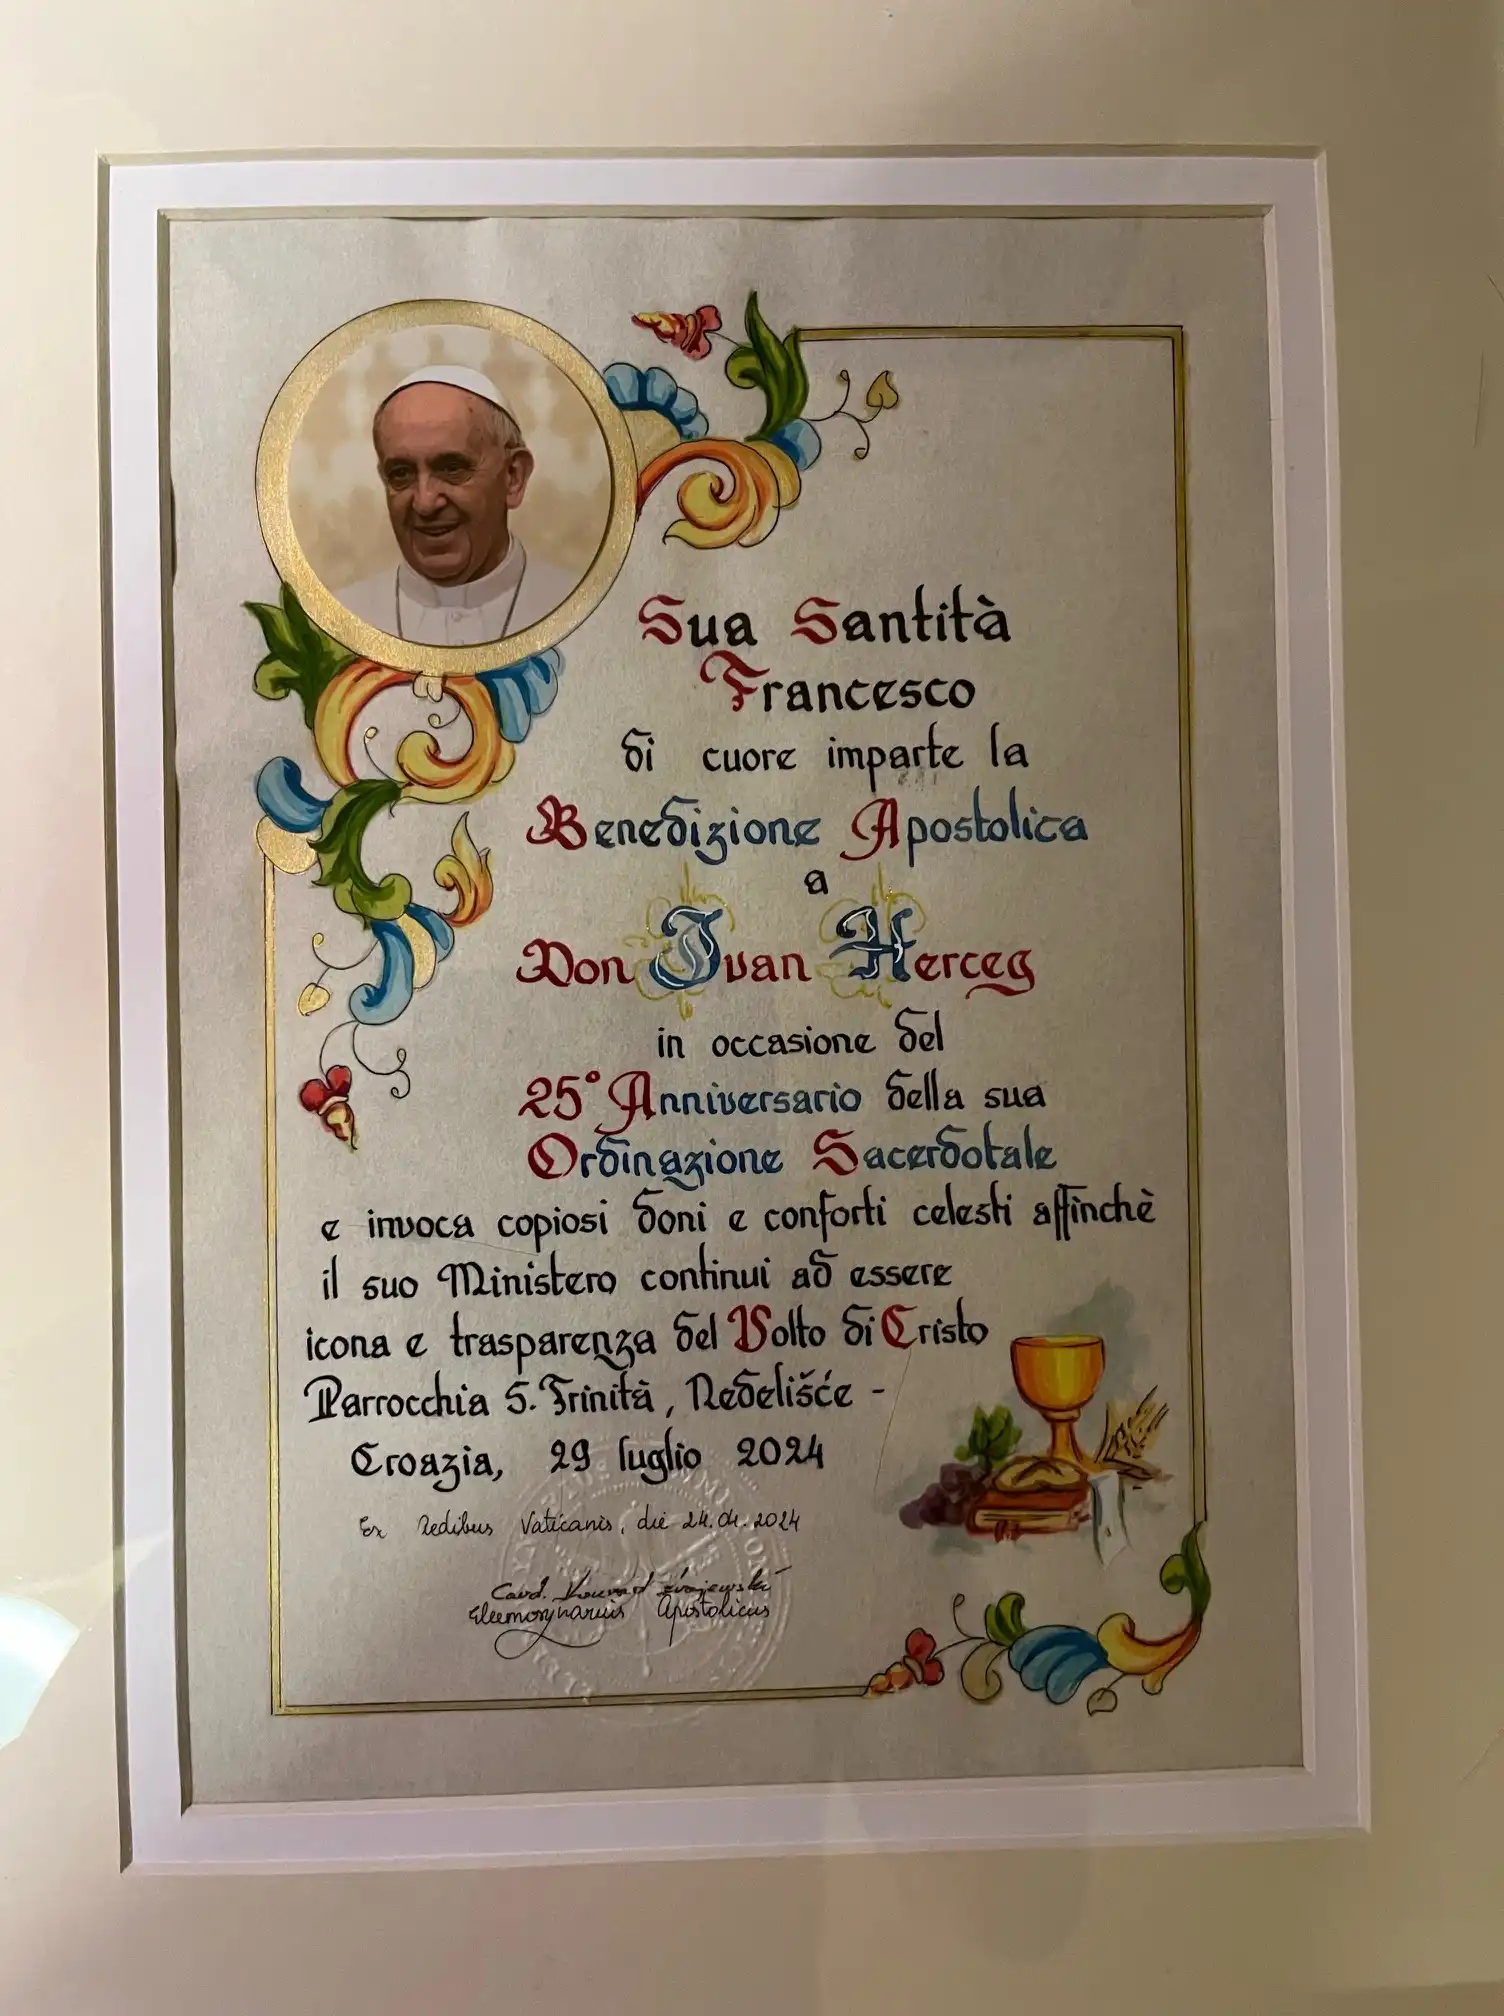 Sua Santità
Francesco
di cuore imparte la
Benedizione Apostolica
a
Don Ivan Herceg
in occasione del
25° Anniversario della sua
Ordinazione Sacerdotale
e invoca copiosi doni e conforti celesti affinchè
il suo Ministero continui ad essere
icona e trasparenza del Volto di Cristo
Parrocchia S. Trinità, Nedelišće -
Croazia, 29 luglio 2024
Ex Aedibus Vaticanis, die 24.04.2024
Card. Konrad Krajewski
Eleemosynarius Apostolicus